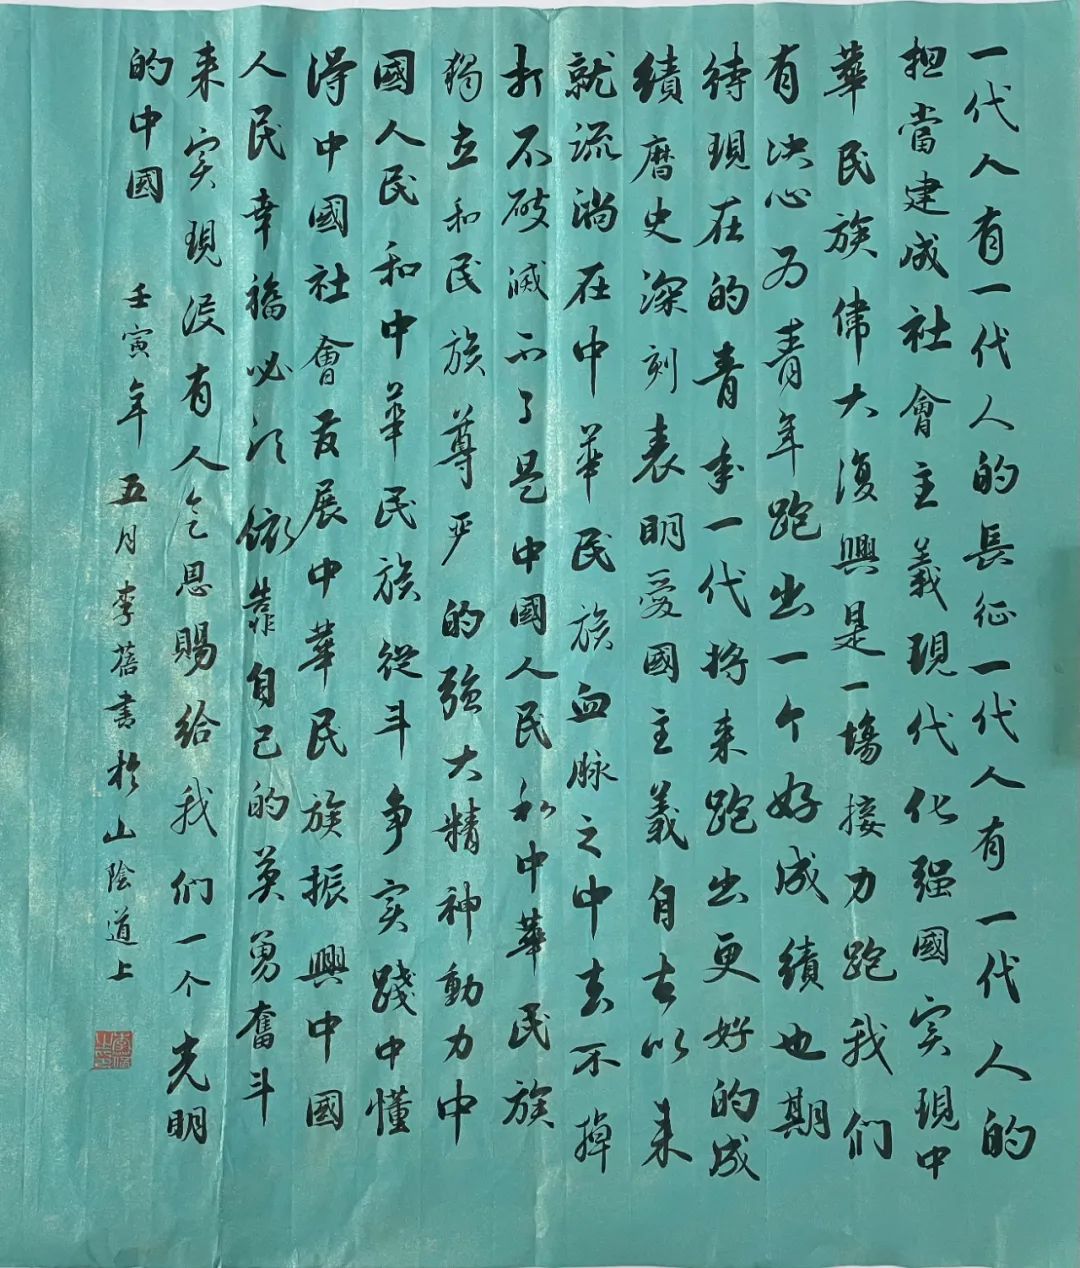 一代人有一代人的長征一代人有一代人的
担當建成社會主義現代化强國实現中
華民族偉大復興是一場接力跑我們
有决心为青年跑出一个好成績也期
待現在的青年一代将来跑出更好的成
績歷史深刻表明愛國主義自古以来
就流淌在中華民族血脉之中去不掉
打不破滅不了是中國人民和中華民族
獨立和民族尊严的强大精神動力中
國人民和中華民族從斗争实踐中懂
得中國社會发展中華民族振興中國
人民幸福必须依靠自己的英勇奮斗
来实現没有人会恩賜给我们一个光明
的中國
壬寅年五月李蓓書於山陰道上